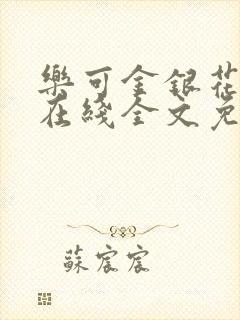 樂可金銀花
在綫全文免
蘇宸宸